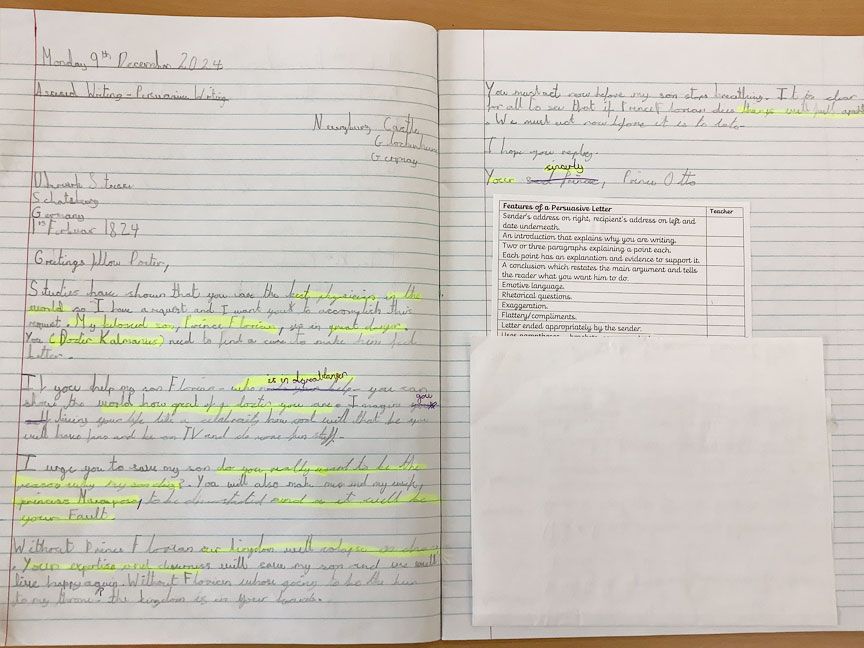 Monday 9th December 2024
Assessed Writing - Persuasive Writing
Castle
Germany
Schatzburg
Germany
1st 1824
Greetings fellow
Studies have shown that you are the best in the
world so I have a request and I want you to accomplish this
request. My beloved son, Prince Florian, is in great danger.
You (Doctor Kalmanius) need to find a cure to make him feel
better.
is in great danger
If you help my son Florian - who - you can
show the world how great of a doctor you are. I imagine you
living your life like a celebrity how cool will that be you
will have fans and be on TV and do some fun stuff.
I urge you to save my son do you really want to be the
reason why my son dies? You will also make me and my wife,
princess to be devastated and it will be
your Fault.
Without Prince Florian our kingdom will
. Your expertise and will save my son and we will
live happy again. Without Florian whose going to be the heir
to my throne? the kingdom is in your hands.
You must act now before my son stops breathing. It is clear
for all to see that if Prince Florian dies things will fall apart
. We must act now before it is to late.
I hope you reply.
sincerly
Your Prince, Prince Otto
Features of a Persuasive Letter Teacher
Sender's address on right, recipient's address on left and
date underneath.
An introduction that explains why you are writing.
Two or three paragraphs explaining a point each.
Each point has an explanation and evidence to support it.
A conclusion which restates the main argument and tells
the reader what you want him to do.
Emotive language.
Rhetorical questions.
Exaggeration.
Flattery/compliments.
Letter ended appropriately by the sender.